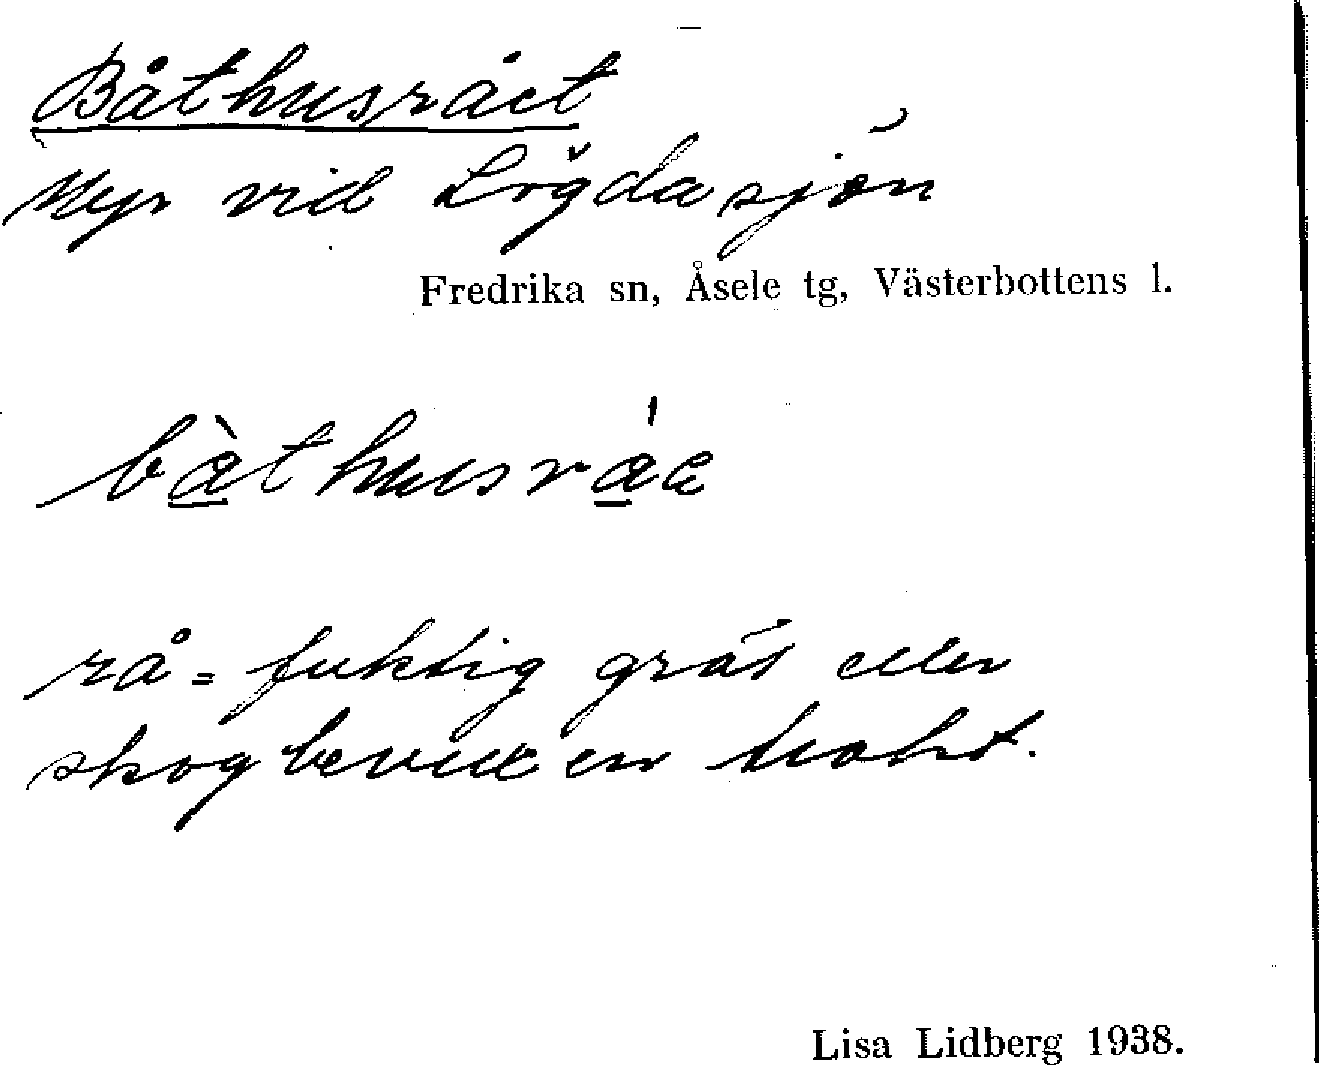 Båthusrået
Myr vid Lögdasjön
Fredrika sn, Åsele tg, Västerbottens l.
bàthusráe
rå = fuktig gräs eller
skogbevuxen trakt.
Lisa Lidberg 1938.